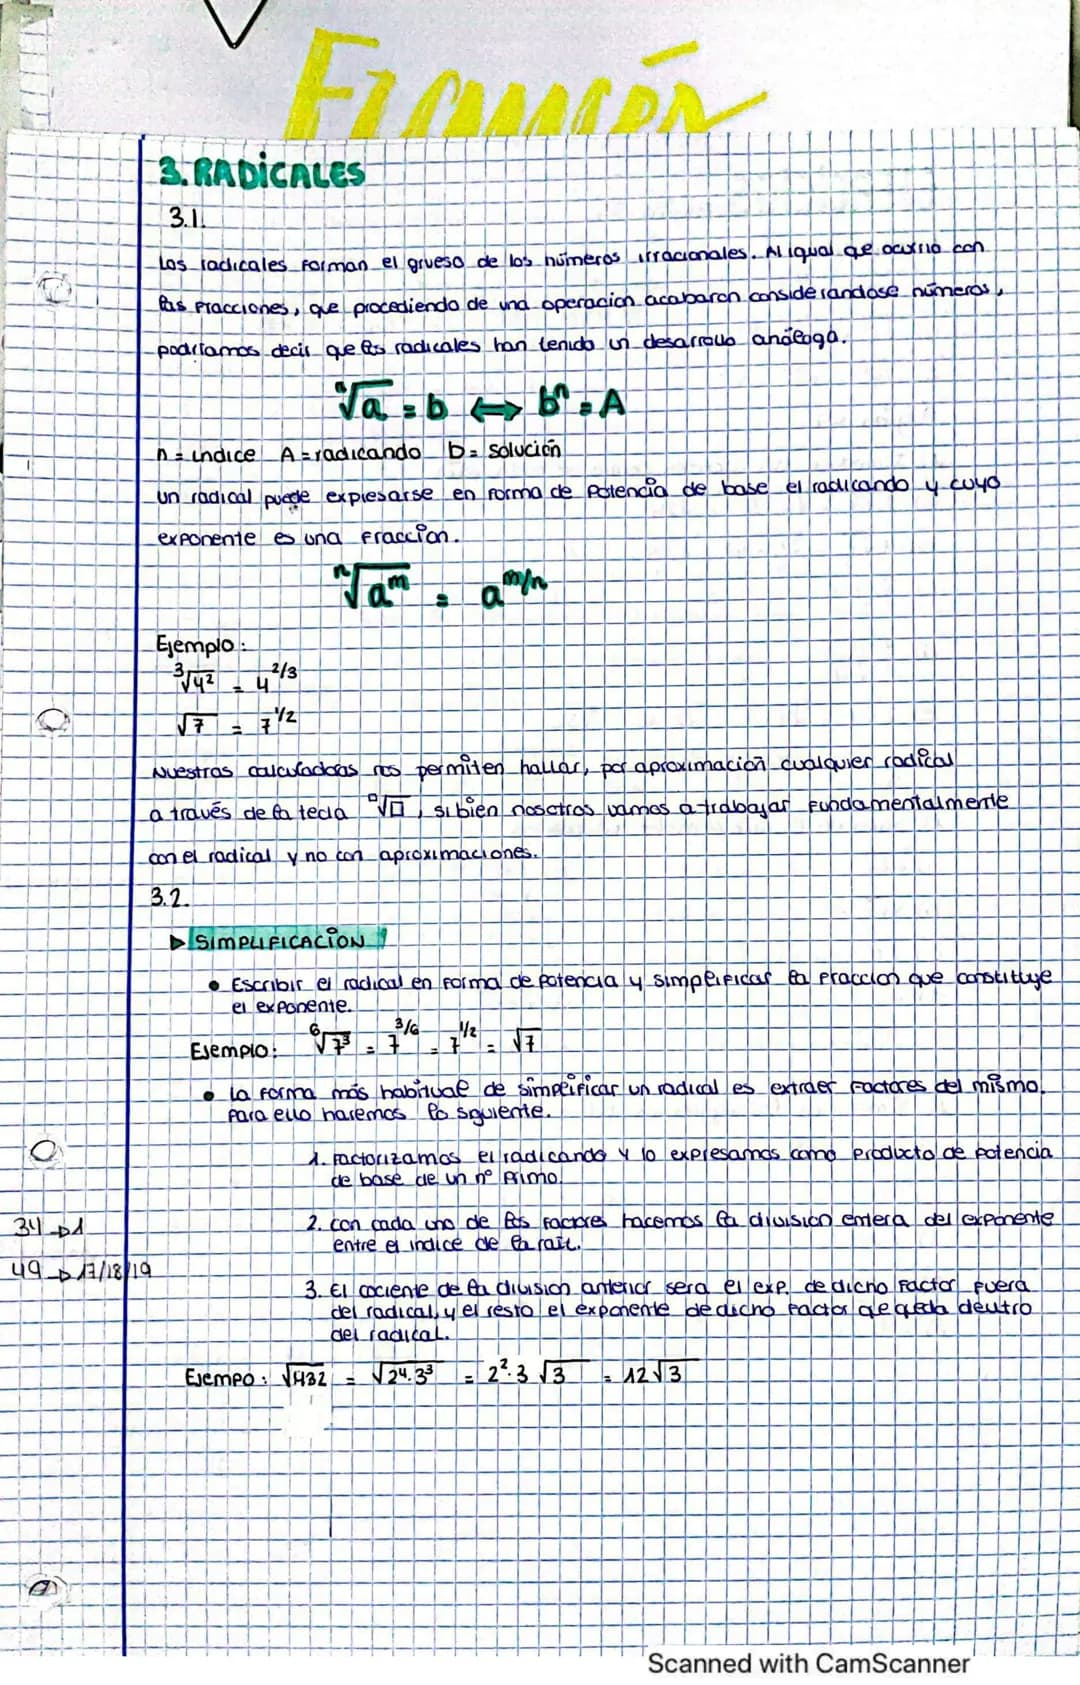 Examen
3. RADICALES
3.1.
Los radicales forman el grueso de los números irracionales. Al igual qe ocurrió con
las fracciones, que procediendo de una operacion acabaron considerandose números,
podríamos decir que los radicales han tenido un desarrollo análogo.
ⁿ√a = b ⟺ bⁿ = A
n = indice A = radicando b = solución
un radical puede expresarse en forma de Potencia de base el radicando y cuyo
exponente es una fraccion.
ⁿ√aᵐ = a^m/n
Ejemplo:
³√4² = 4^2/3
√7 = 7^1/2
Nuestras calculadoras nos permiten hallar, por aproximación cualquier radical
a través de la tecla ⁿ√□, si bien nosotros vamos a trabajar fundamentalmente
con el radical y no con aproximaciones.
3.2.
▷ SIMPLIFICACIÓN
• Escribir el radical en forma de potencia y simplificar la fraccion que constituye
el exponente.
Ejemplo: ⁶√7³ = 7^3/6 = 7^1/2 = √7
• La forma más habitual de simplificar un radical es extraer factores del mismo.
Para ello haremos lo sguiente.
1. Factorizamos el radicando y lo expresamos como producto de potencia
de base de un nº Primo.
34 → 1
2. con cada uno de los factores hacemos la division entera del exponente
entre el indice de la raíz.
49 → 17/18/19
3. El cociente de la division anterior sera el exp. de dicho factor fuera
del radical, y el resto el exponente de dicho factor qe qeda dentro
del radical.
Ejempo: √432 = √2⁴·3³ = 2²·3 √3 = 12√3
Scanned with CamScanner